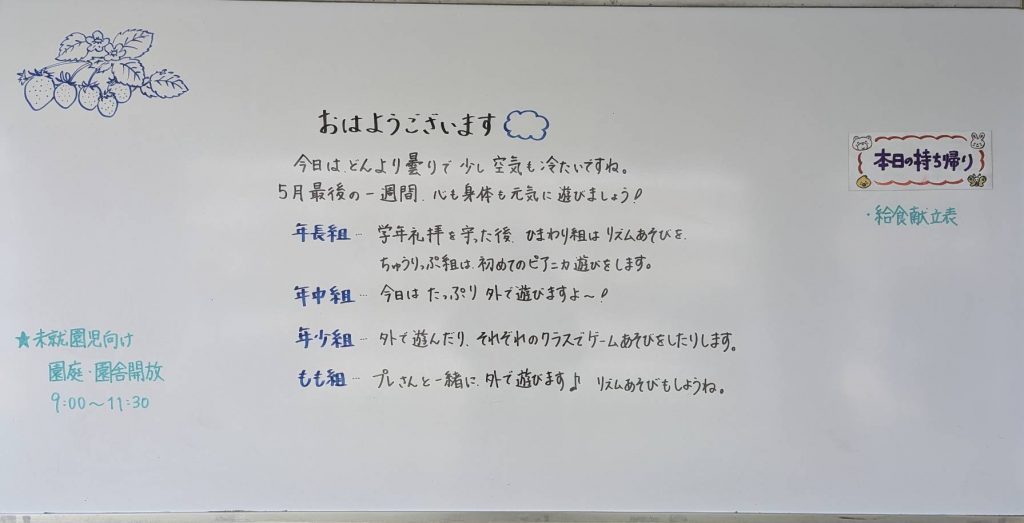 おはようございます
今日は、どんより曇りで少し空気も冷たいですね。
5月最後の一週間、心も身体も元気に遊びましょう!
年長組… 学年礼拝を守った後、ひまわり組はリズムあそびを、
ちゅうりっぷ組は、初めてのピアニカ遊びをします。
年中組… 今日はたっぷり外で遊びますよ〜!
年少組… 外で遊んだり、それぞれのクラスでゲームあそびをしたりします。
もも組… プレさんと一緒に、外で遊びます♪ リズムあそびもしようね。
★未就園児向け
園庭・園舎開放
9:00〜11:30
本日の持ち帰り
・給食献立表